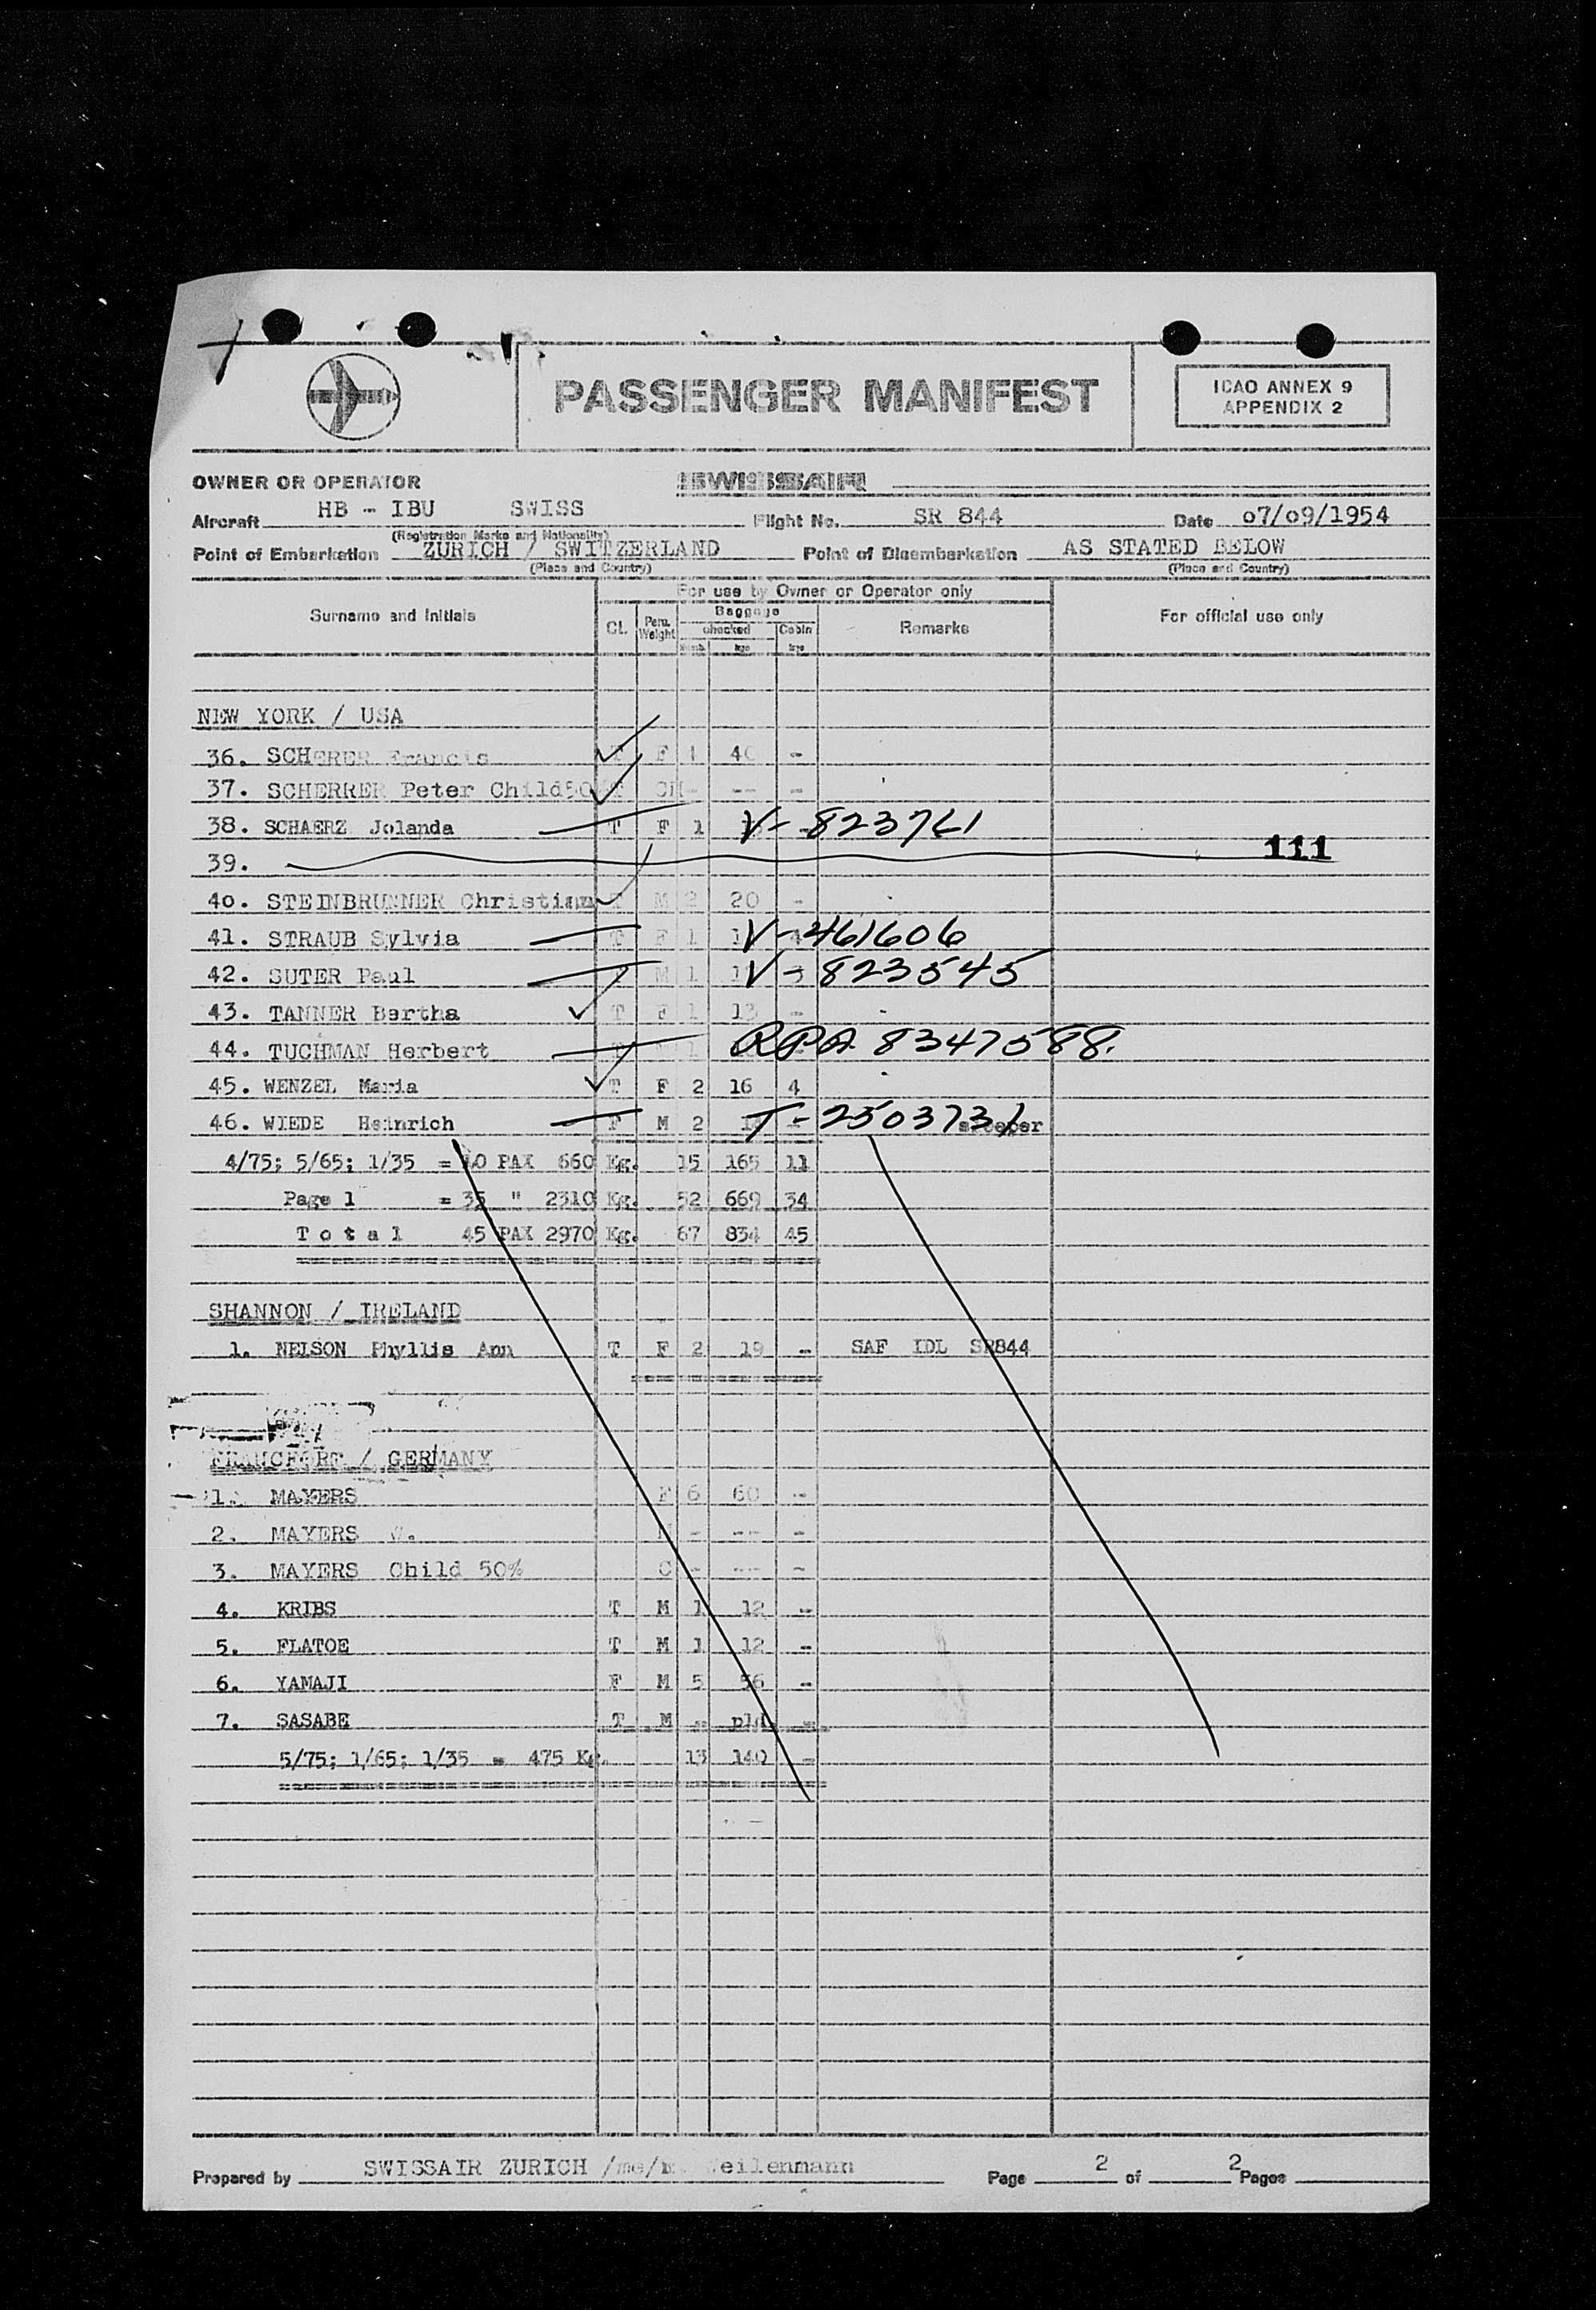 PASSENGER MANIFEST
ICAO ANNEX 9
APPENDIX 2
OWNER OR OPERATOR SWISSAIR
Aircraft HB - IBU SWISS Flight No. SR 844 Date 07/09/1954
(Registration Marks and Nationality)
Point of Embarkation ZURICH / SWITZERLAND Point of Disembarkation AS STATED BELOW
(Place and Country) (Place and Country)
For use by Owner or Operator only
Surname and Initials CL. Pers. Weight Baggage checked Cabin Remarks For official use only
Numb. kgs kgs
NEW YORK / USA
36. SCHERER Francis T F 1 40 -
37. SCHERRER Peter Child50 T CH - -- -
38. SCHAERZ Jolanda T F 1 V-823761
39. 111
40. STEINBRUNNER Christian T M 2 20 -
41. STRAUB Sylvia T F 1 V-461606
42. SUTER Paul T M 1 V-823545
43. TANNER Bertha T F 1 13 -
44. TUCHMAN Herbert 1 RPA 8347588.
45. WENZEL Maria T F 2 16 4
46. WIEDE Heinrich F M 2 T-2503731
4/75; 5/65; 1/35 = 10 PAX 660 Kg. 15 165 11
Page 1 = 35 " 2310 Kg. 52 669 34
Total 45 PAX 2970 Kg. 67 834 45
SHANNON / IRELAND
1. NELSON Phyllis Ann T F 2 19 - SAF IDL SR844
FRANCFORT / GERMANY
1. MAYERS F 6 60 -
2. MAYERS - -- -
3. MAYERS Child 50% C - -- -
4. KRIBS T M 1 12 -
5. FLATOE T M 1 12 -
6. YAMAJI F M 5 56 -
7. SASABE T M - -
5/75; 1/65; 1/35 = 475 Kg. 13 140 -
Prepared by SWISSAIR ZURICH Weilenmann Page 2 of 2 Pages